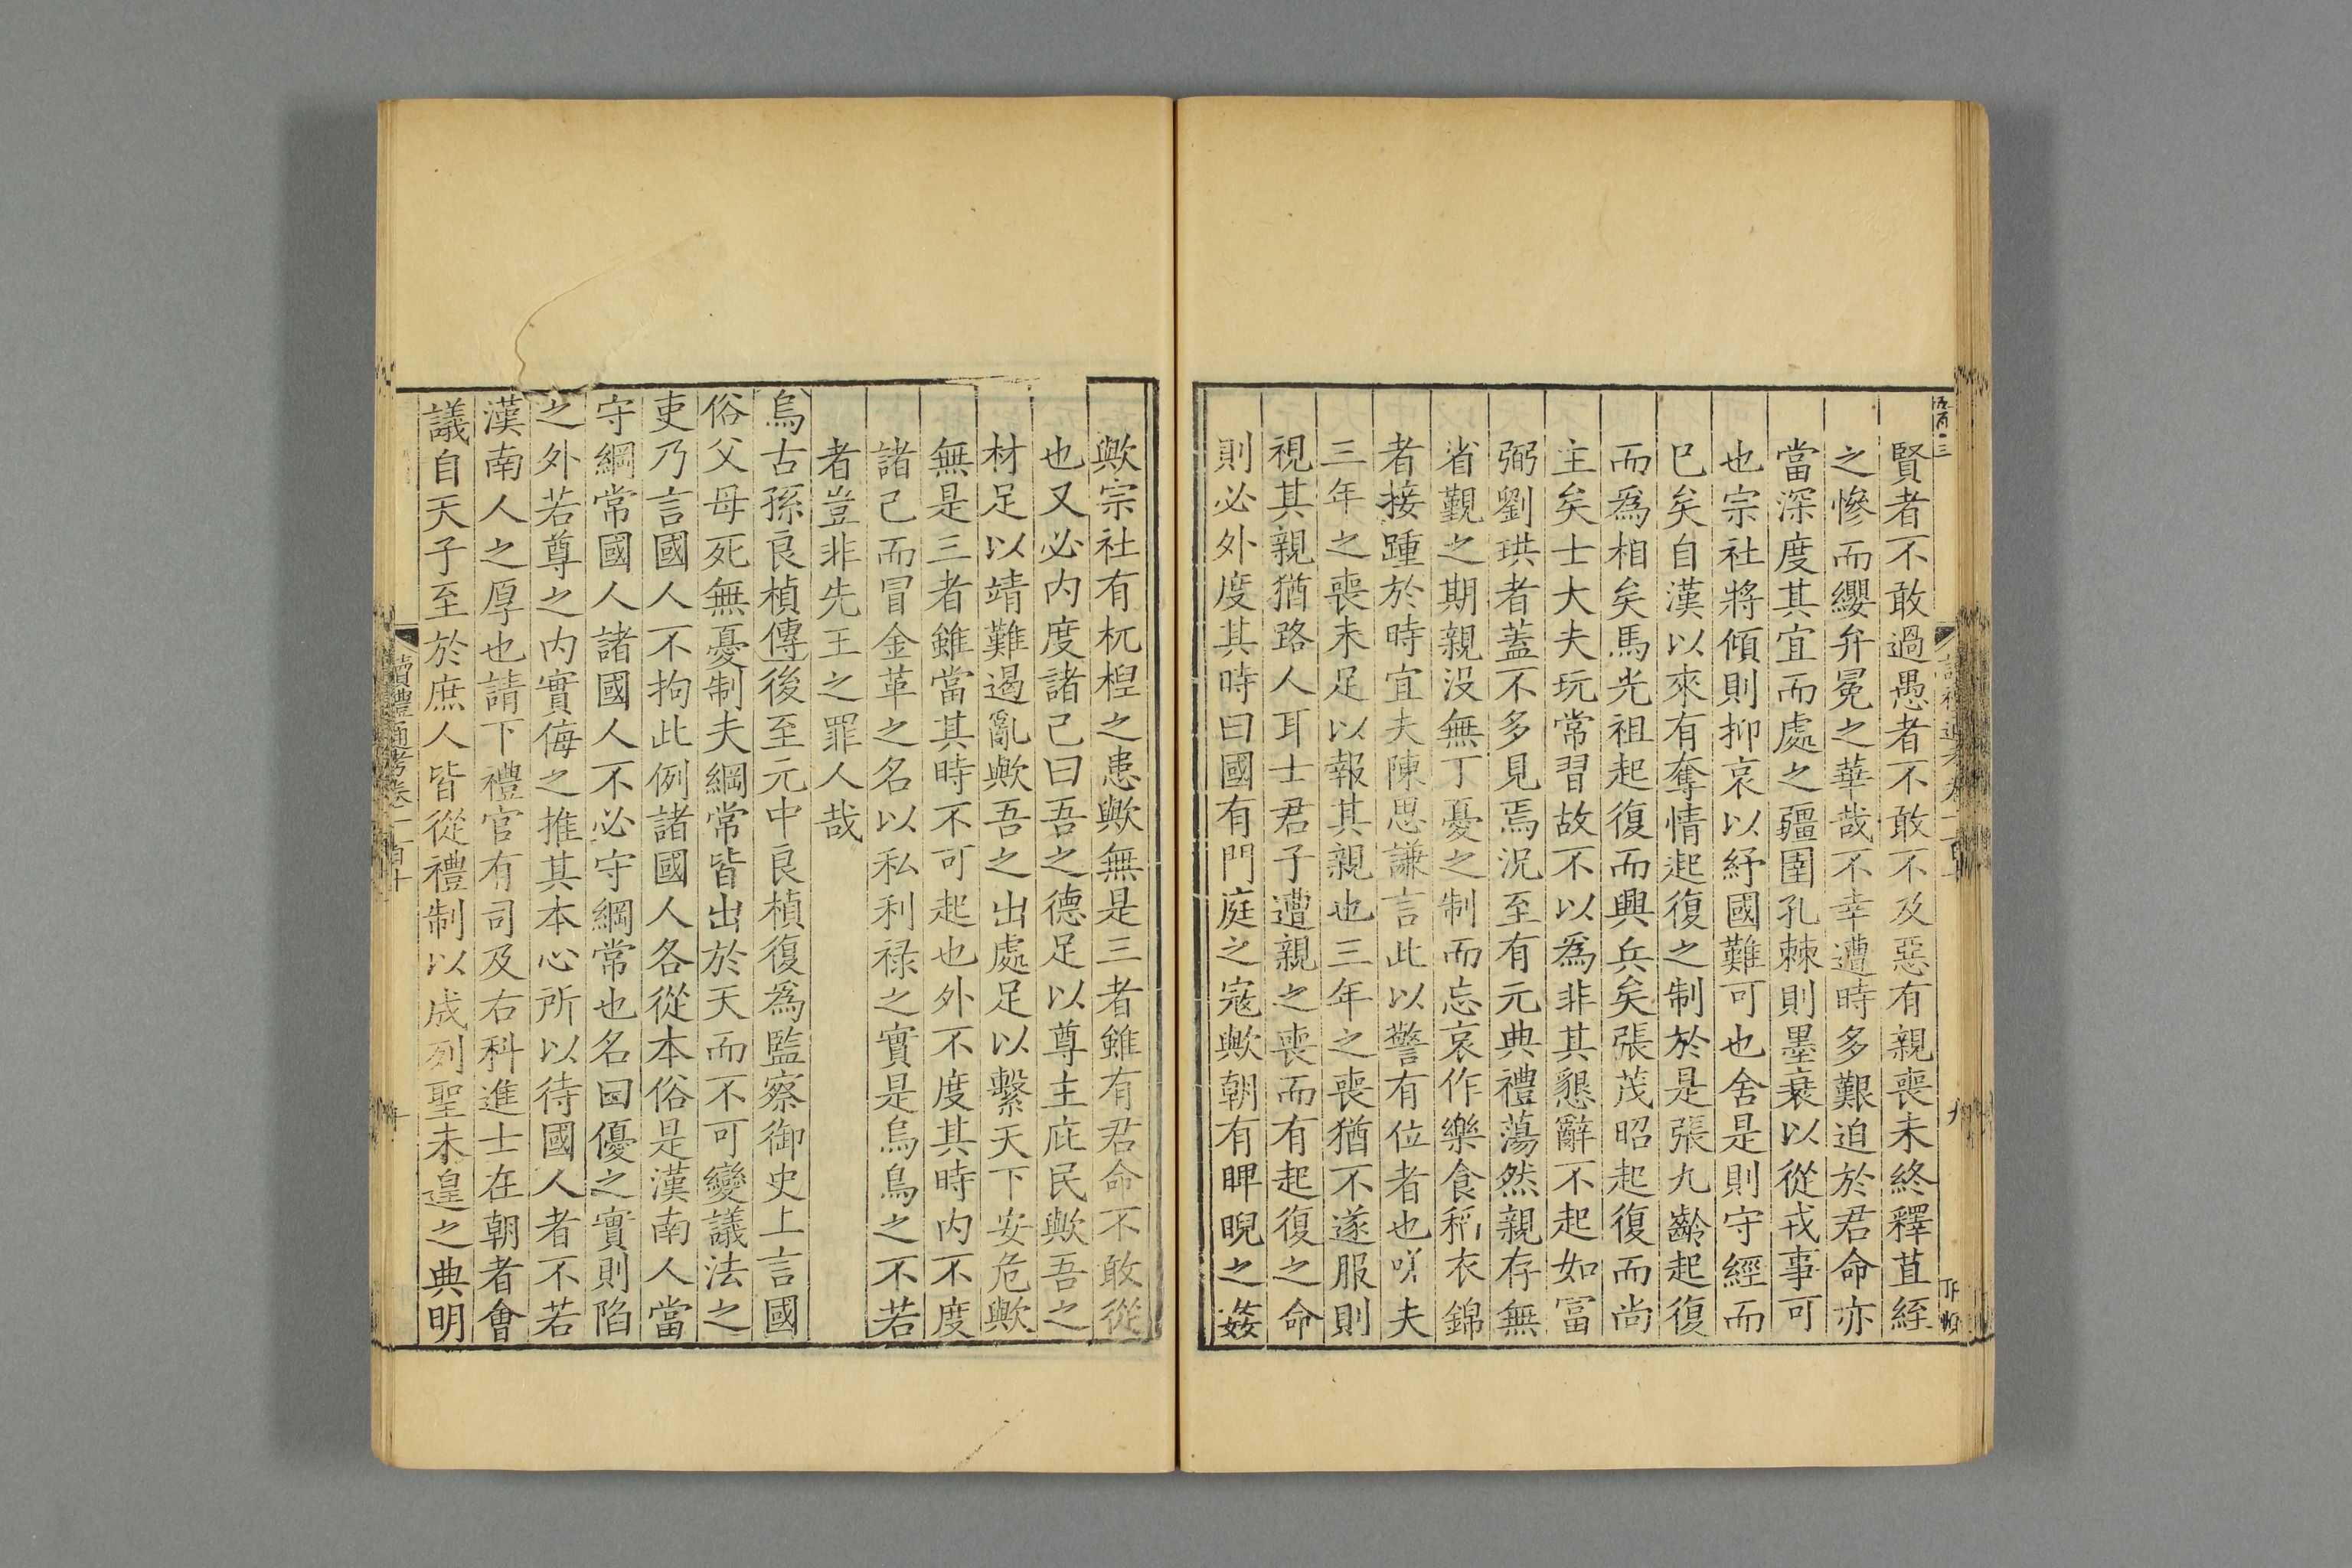 賢者不敢過愚者不敢不及惡有親喪未終釋苴絰
之慘而纓弁冕之華哉不幸遭時多艱迫於君命亦
當深度其宜而處之疆圉孔棘則墨衰以從戎事可
也宗社將傾則抑哀以紓國難可也舍是則守經而
已矣自漢以來有奪情起復之制於是張九齡起復
而爲相矣馬光祖起復而興兵矣張茂昭起復而尚
主矣士大夫玩常習故不以爲非其懇辭不起如富
弼劉珙者蓋不多見焉況至有元典禮蕩然親存無
省覲之期親没無丁憂之制而忘哀作樂食稻衣錦
者接踵於時宜夫陳思謙言此以警有位者也嗟夫
三年之喪未足以報其親也三年之喪猶不遂服則
視其親猶路人耳士君子遭親之喪而有起復之命
則必外度其時曰國有門庭之寇歟朝有睥睨之姦
歟宗社有杌棿之患歟無是三者雖有君命不敢從
也又必内度諸己曰吾之德足以尊主庇民歟吾之
材足以靖難遏亂歟吾之出處足以繫天下安危歟
無是三者雖當其時不可起也外不度其時内不度
諸己而冒金革之名以私利禄之實是烏鳥之不若
者豈非先王之罪人哉
烏古孫良楨傳後至元中良楨復爲監察御史上言國
俗父母死無憂制夫綱常皆出於天而不可變議法之
吏乃言國人不拘此例諸國人各從本俗是漢南人當
守綱常國人諸國人不必守綱常也名曰優之實則陷
之外若尊之内實侮之推其本心所以待國人者不若
漢南人之厚也請下禮官有司及右科進士在朝者會
議自天子至於庶人皆從禮制以成列聖未遑之典明
讀禮通考卷一百十